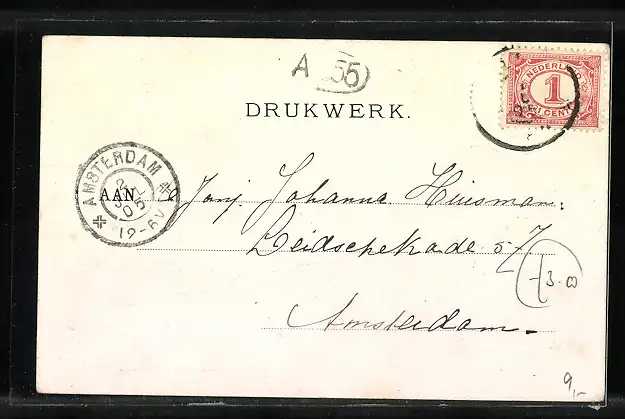 A 55
DRUKWERK.
NEDERLAND
1
CENT
AMSTERDAM
2 JUL 05
12-6V
AAN Jonj. Johanna Huisman.
Leidschekade 57
Amsterdam.
9,-